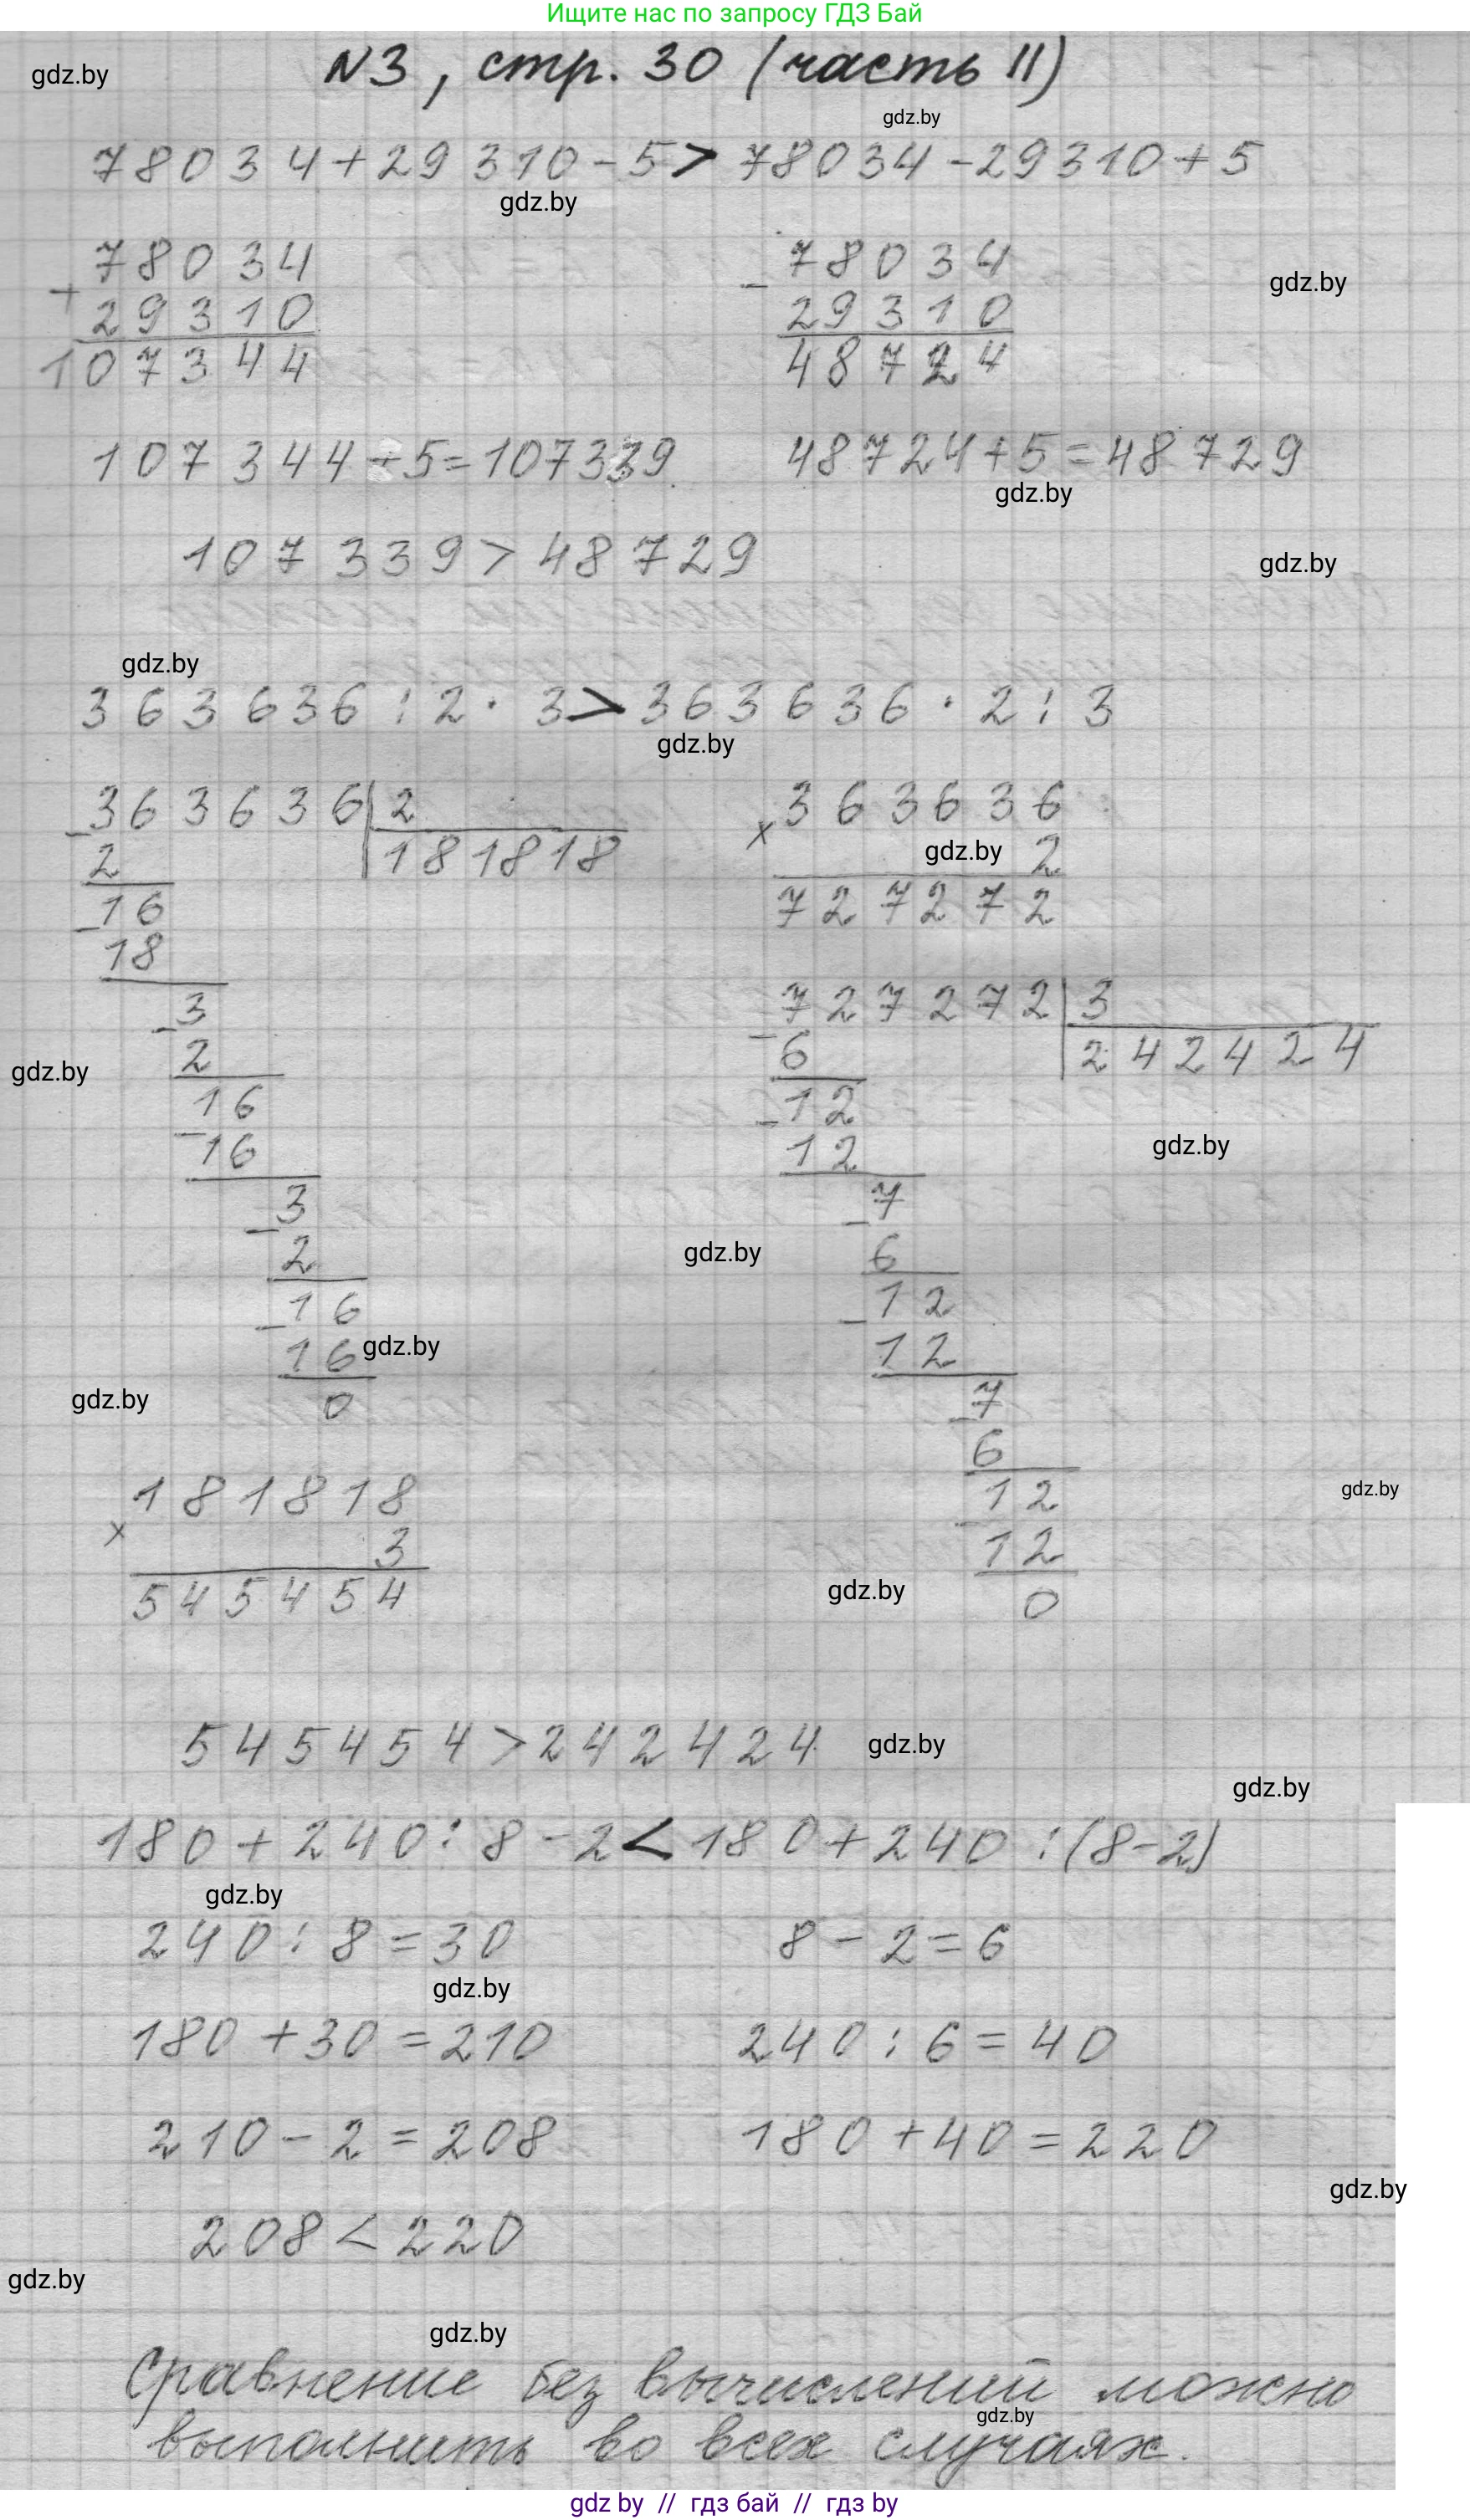 Ищите нас по запросу ГДЗ Бай
N3, стр. 30 (часть II)
gdz.by
gdz.by
78034+29310-5> 78034-29310+5
gdz.by
78034
+
29310
107344
78034
-
29310
48724
gdz.by
107344-5=107339.
48724+5=48729
gdz.by
107339>48729
gdz.by
gdz.by
363636:2·3>363636·2:3
gdz.by
363636|2
-
2
181818
-16
18
-3
2
16
-
16
-3
2
16
-
16
gdz.by
0
gdz.by
181818
x
3
545454
363636
x
gdz.by
2
727272
727272|3
-
6
242424
-12
12
gdz.by
-7
6
gdz.by
-12
12
-7
6
12
-
12
0
gdz.by
gdz.by
gdz.by
545454>242424
gdz.by
gdz.by
180+240:8-2<180+240:(8-2)
gdz.by
240:8=30
8-2=6
gdz.by
180+30=210
240:6=40
210-2=208
180+40=220
gdz.by
208<220
gdz.by
gdz.by
Сравнение без вычислений можно
gdz.by
выполнить во всех случаях.
gdz by // гдз бай // гдз by